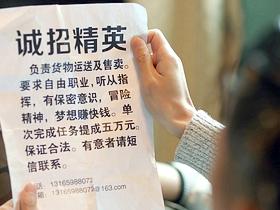 诚招精英
负责货物运送及售卖。
要求自由职业，听从指
挥，有保密意识，冒险
精神，梦想赚快钱。单
次完成任务提成五万元。
保证合法。有意者请短
信联系。
话：13165988072
箱：13165988072@163.com